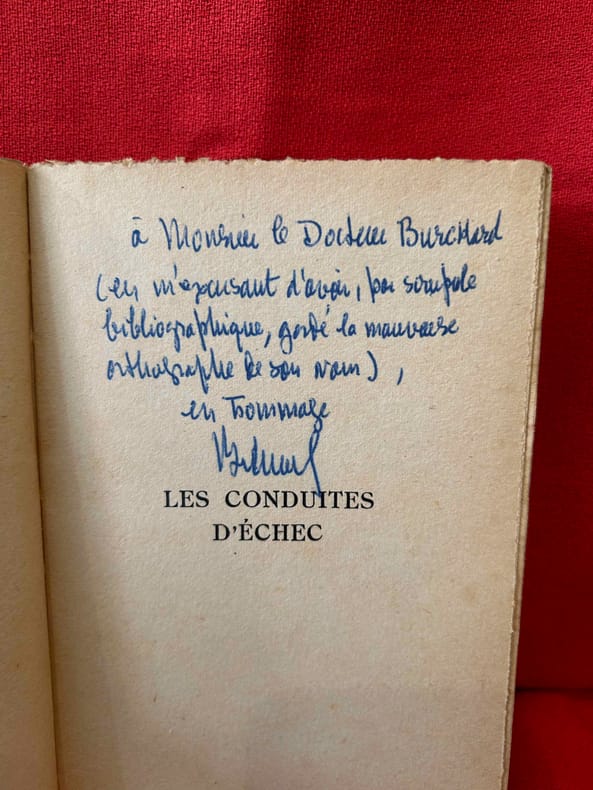 à Monsieur le Docteur Burchard
(en m'excusant d'avoir, par scrupule
bibliographique, gardé la mauvaise
orthographe de son nom),
en hommage
LES CONDUITES
D'ÉCHEC